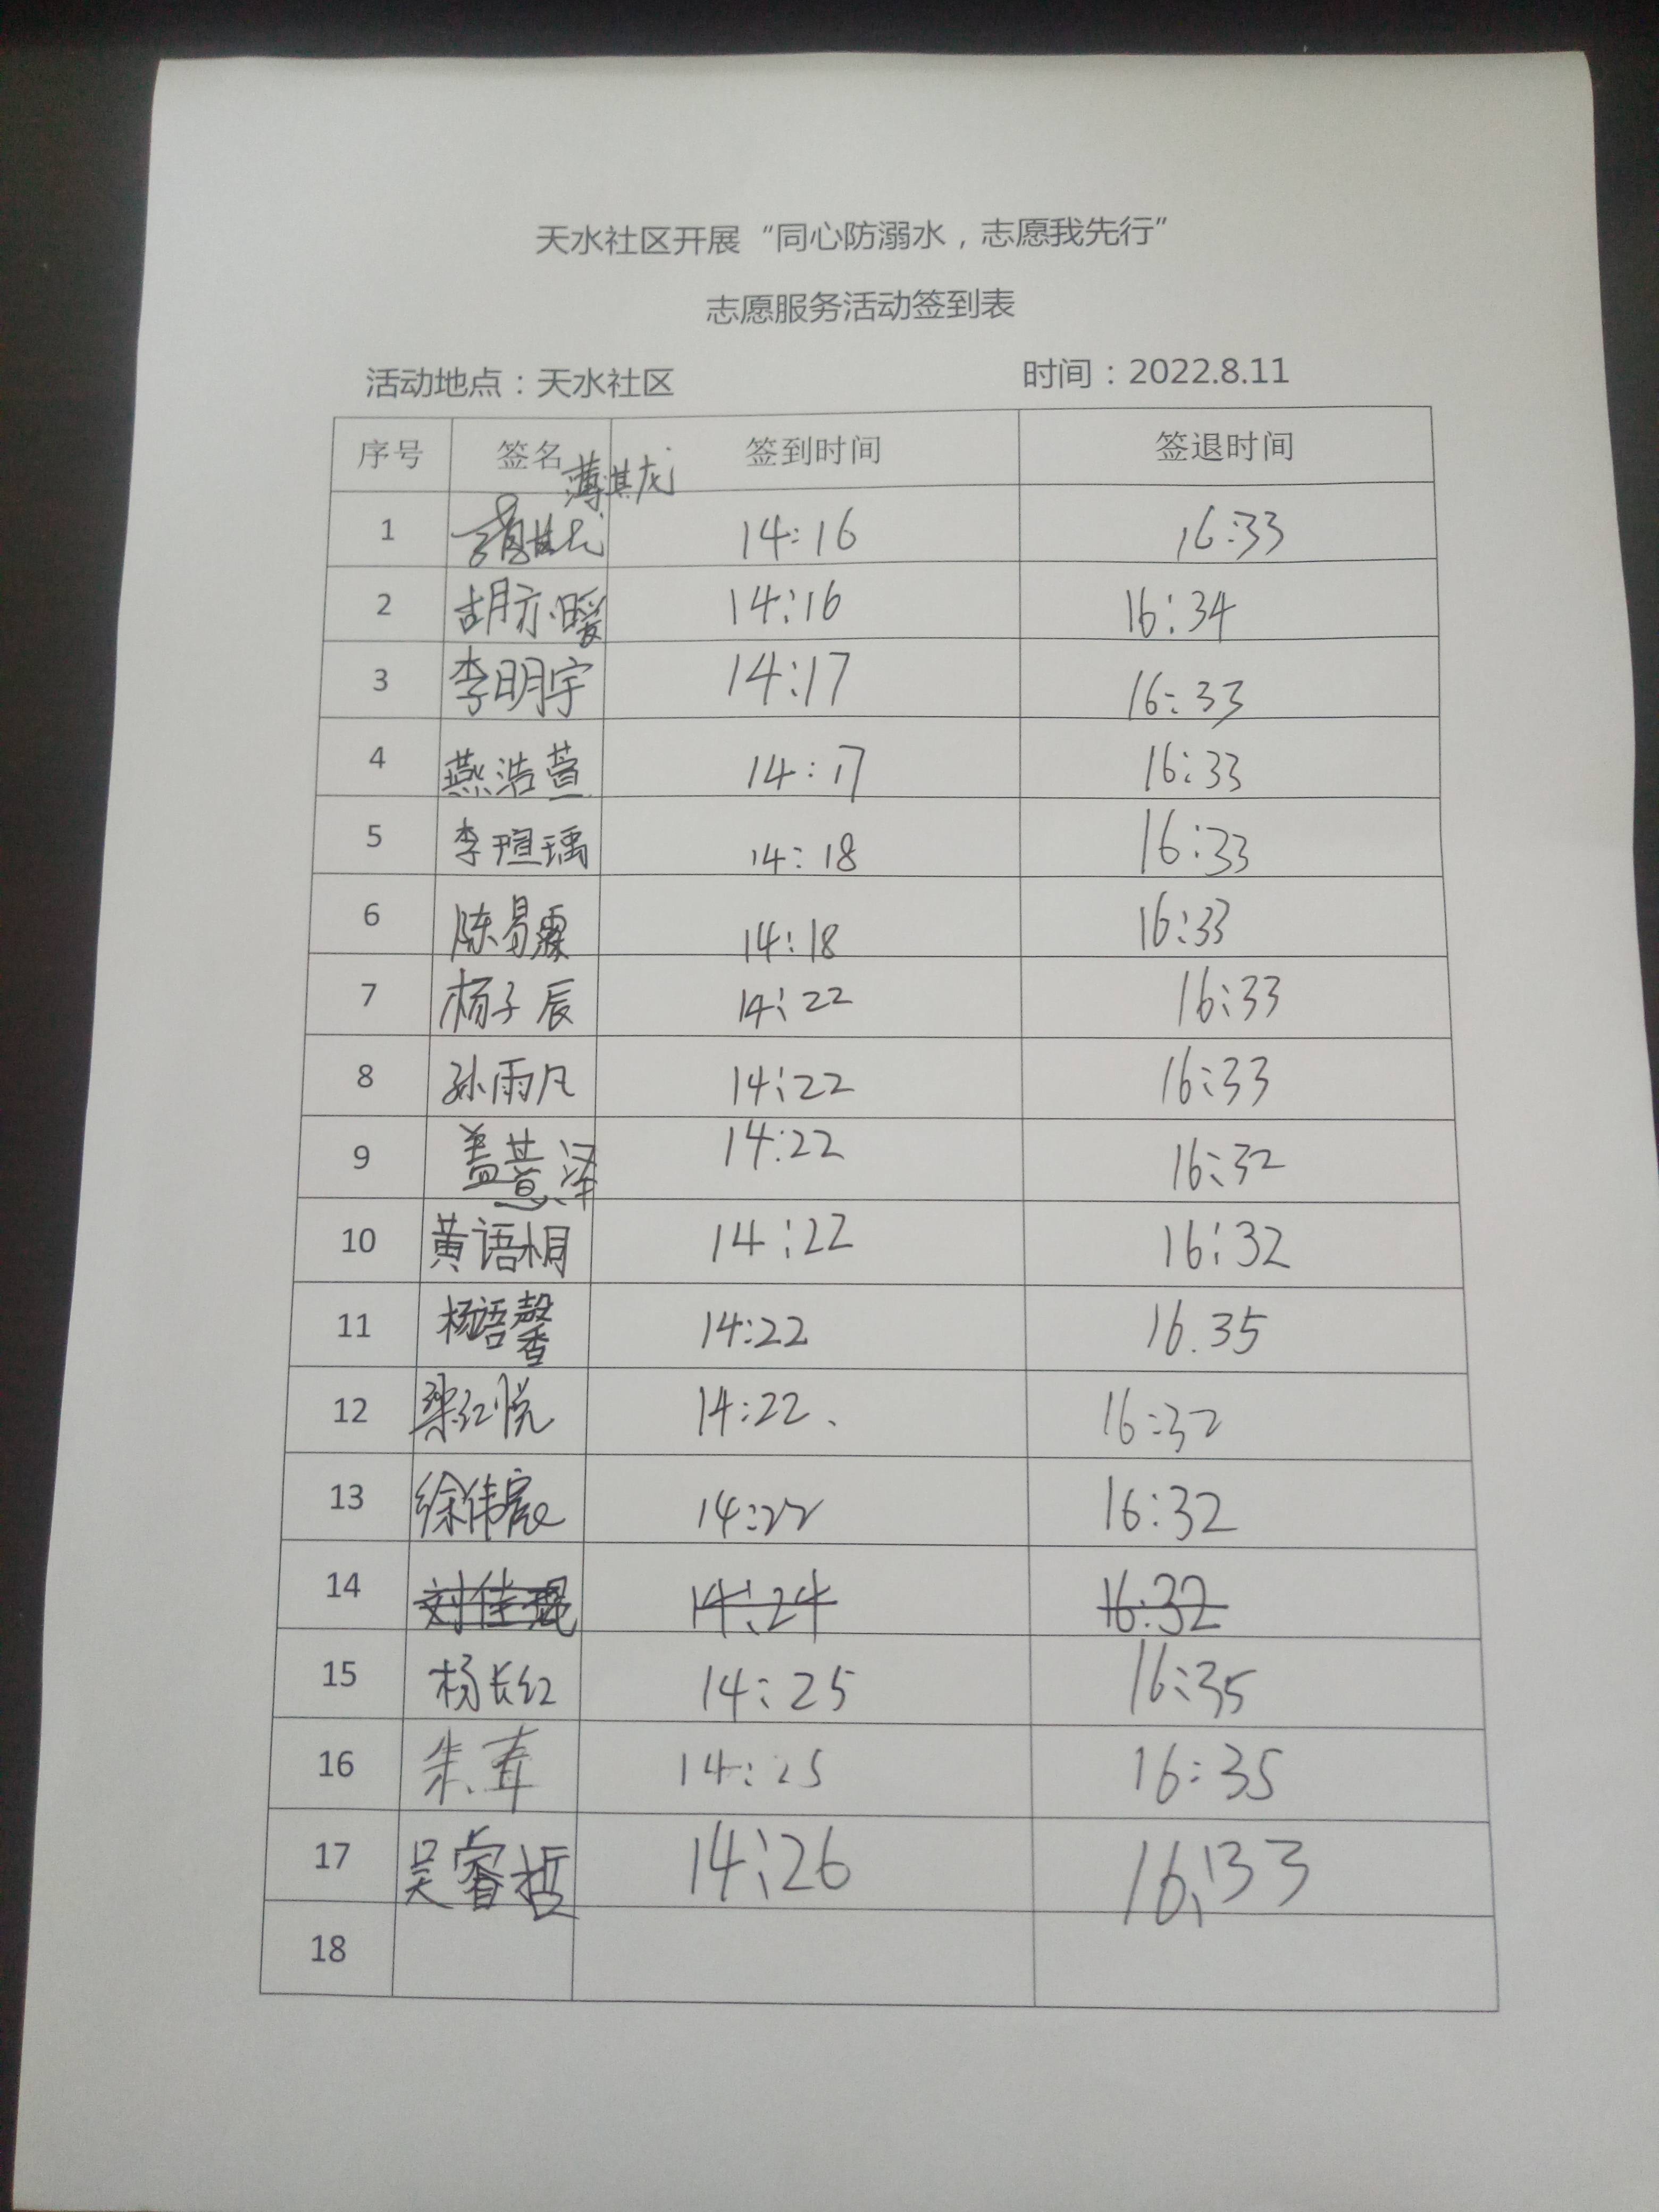 天水社区开展“同心防溺水，志愿我先行”
志愿服务活动签到表
活动地点：天水社区 时间：2022.8.11
序号 签名 签到时间 签退时间
薄其龙
1 14:16 16:33
2 胡亦暖 14:16 16:34
3 李明宇 14:17 16:33
4 燕浩萱 14:17 16:33
5 李瑄瑀 14:18 16:33
6 陈易霖 14:18 16:33
7 杨子辰 14:22 16:33
8 孙雨凡 14:22 16:33
9 盖慧泽 14:22 16:32
10 黄语桐 14:22 16:32
11 杨语馨 14:22 16.35
12 梁红悦 14:22、 16:32
13 徐伟宸 14:22 16:32
14 刘佳琨 14:24 16:32
15 杨长红 14:25 16:35
16 14:25 16:35
17 吴睿哲 14:26 16:33
18